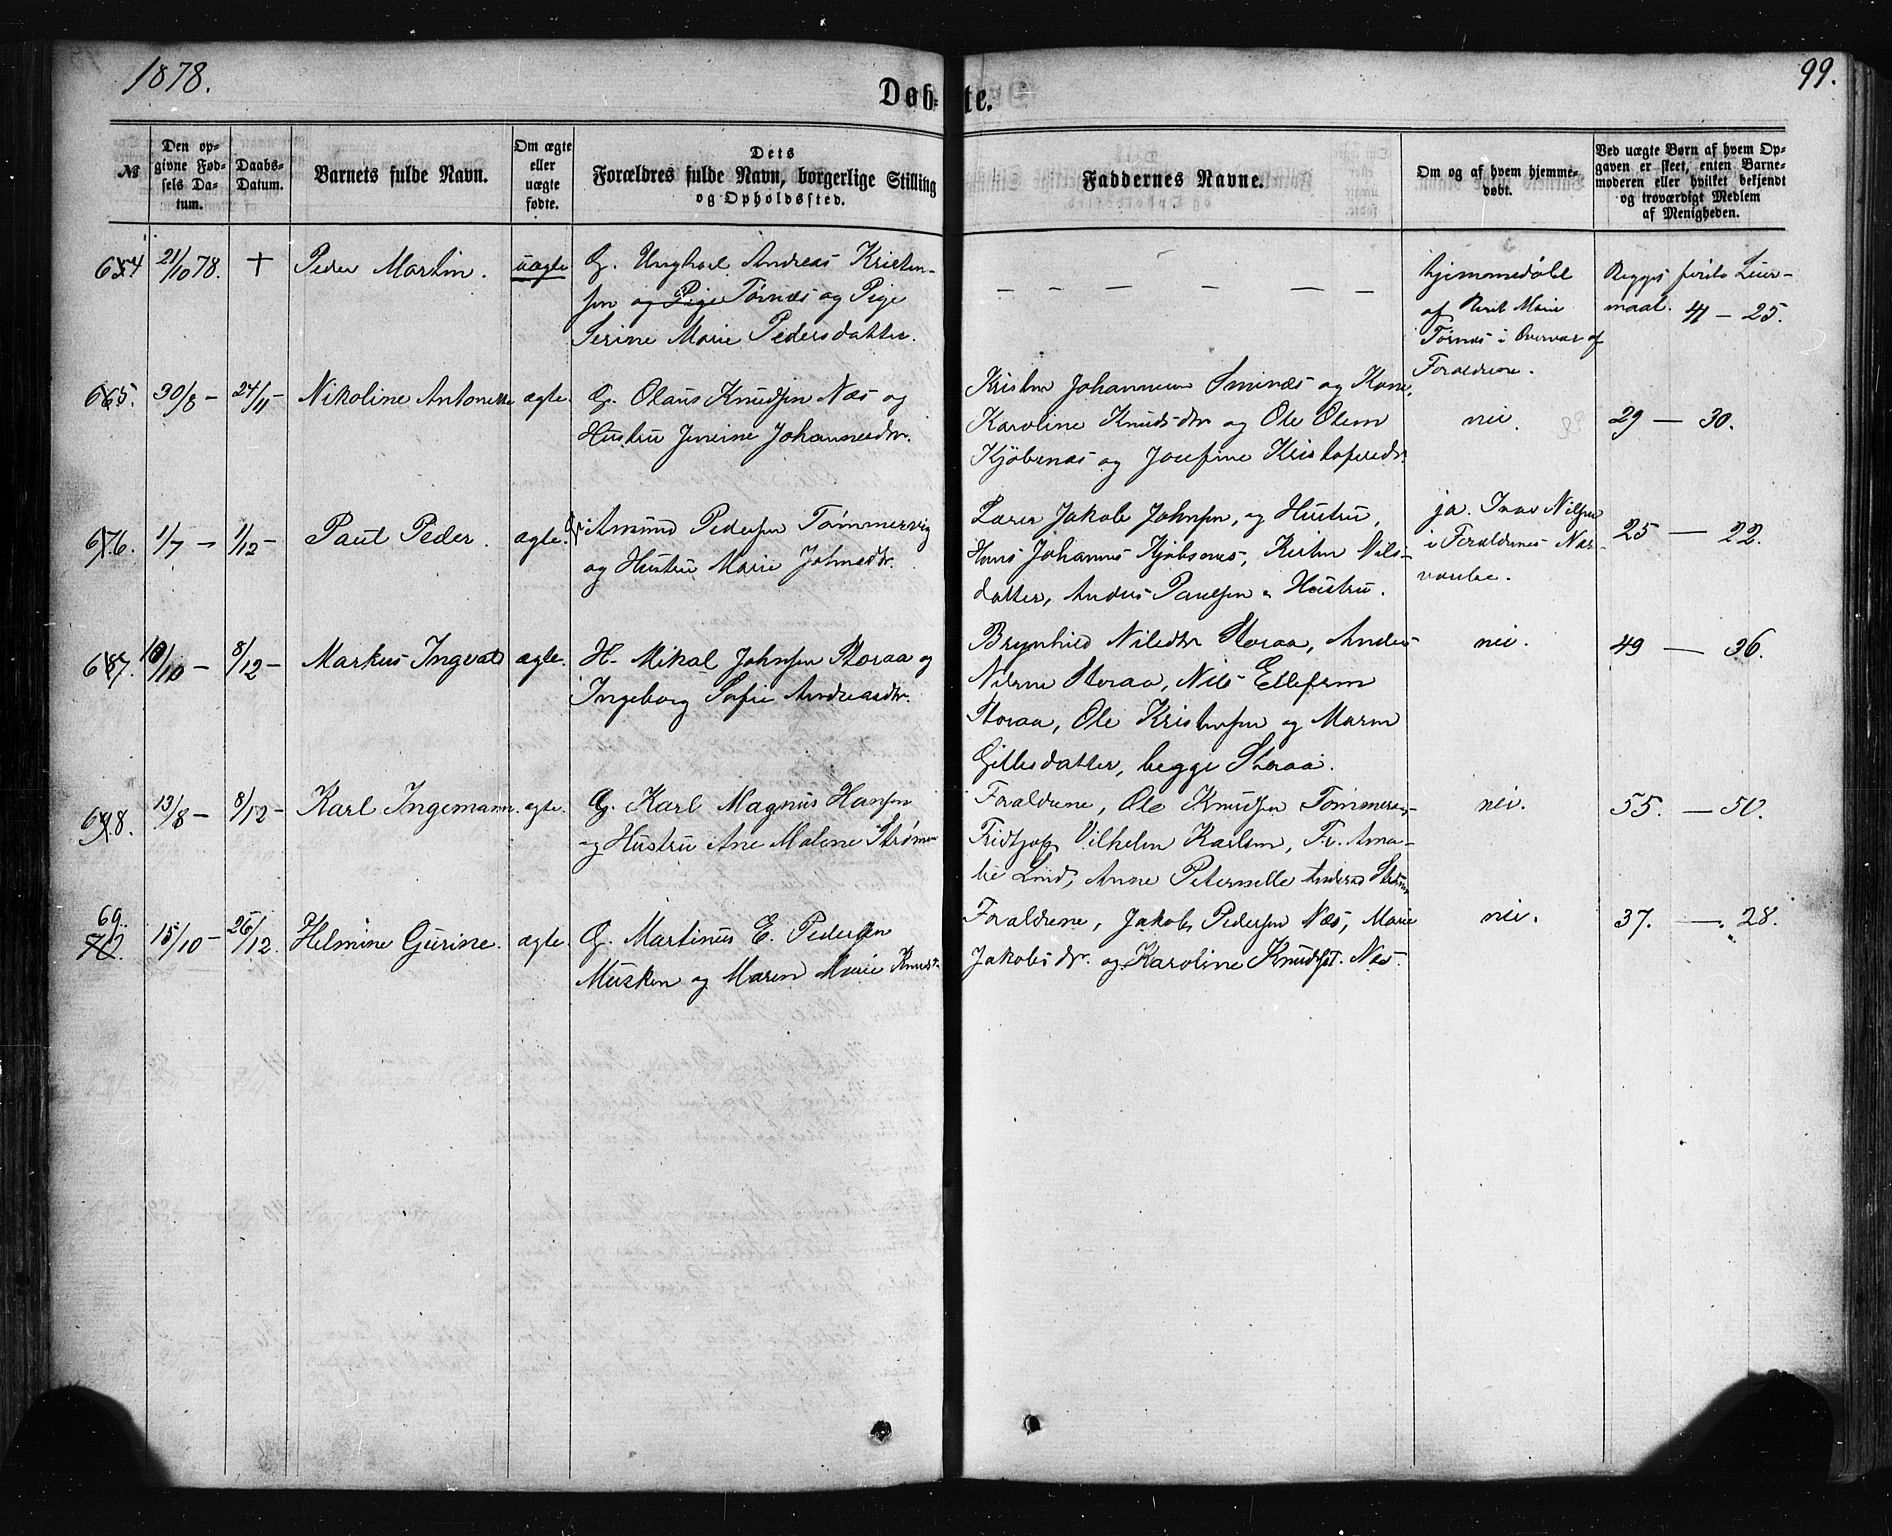 1878.
Døb-te.
99.
№
Den op-
givne Fød-
sels Da-
tum.
Daabs-
Datum.
Barnets fulde Navn.
Om ægte
eller
uægte
fødte.
Dets
Forældres fulde Navn, borgerlige Stilling
og Opholdssted.
Faddernes Navne.
Om og af hvem hjemme-
døbt.
Ved uægte Børn af hvem Op-
gaven er skeet, enten Barne-
moderen eller hvilket bekjendt
og troværdigt Medlem
af Menigheden.
64 21/10 78. + Peder Martin. uægte
G. Ungkarl Andreas Kristen-
sen og Pige Tørnæs og Pige
Serine Marie Pedersdatter.
— — — — — —
hjemmedøbt
af Marie
Tørnæs i Overvær af
Forældrene.
Begges første Leier-
maal. 41 — 25.
65. 30/8 — 24/11 — Nikoline Antonette ægte.
G. Olaus Knudsen Næs og
Hustru Johannesdtr.
Kristen Johannesen og Kone
Karoline Knudsdtr og Ole Olsen
Kjøbsnæs og Josefine Kristofersdtr.
nei.
29 — 30.
66. 1/7 — 1/12 — Paul Peder. ægte.
Amund Pedersen Tømmervig
og Hustru Marie Johnsdtr.
Lærer Jakob Johnsen, og Hustru,
Hans Johannes Kjøbsnes, Kirsten Nils-
datter, Anders Paulsen & Hustru.
ja. Nilsen
i Forældrenes Nær-
værelse.
25 — 22.
67. 10/10 — 8/12 — Markus Ingvald ægte.
H. Mikal Johnsen Storaa og
Ingeborg Sofie Andreasdtr.
Brynhild Nilsdtr Storaa, Anders
Nilsen Storaa, Nils Ellefsen
Storaa, Ole Kristensen og Maren
Gillesdatter, begge Storaa.
nei.
49 — 36.
68. 13/8 — 8/12 — Karl Ingemann. ægte.
G. Karl Magnus Hansen
og Hustru Ane Malene Strømen
Forældrene, Ole Knudsen Tømmeraas
Fridtjof Vilhelm Karlsen, Fr. Ama-
lie Lind, Anne Peternelle Andreas
nei.
55. — 50.
69.
15/10 — 26/12. Helmine Gurine. ægte.
G. Martinus E. Pedersen
Musken og Maren Marie Knudsd.
Forældrene, Jakob Pedersen Næs, Marie
Jakobsdtr. og Karoline Knudsdt. Næs.
nei.
37. — 28.